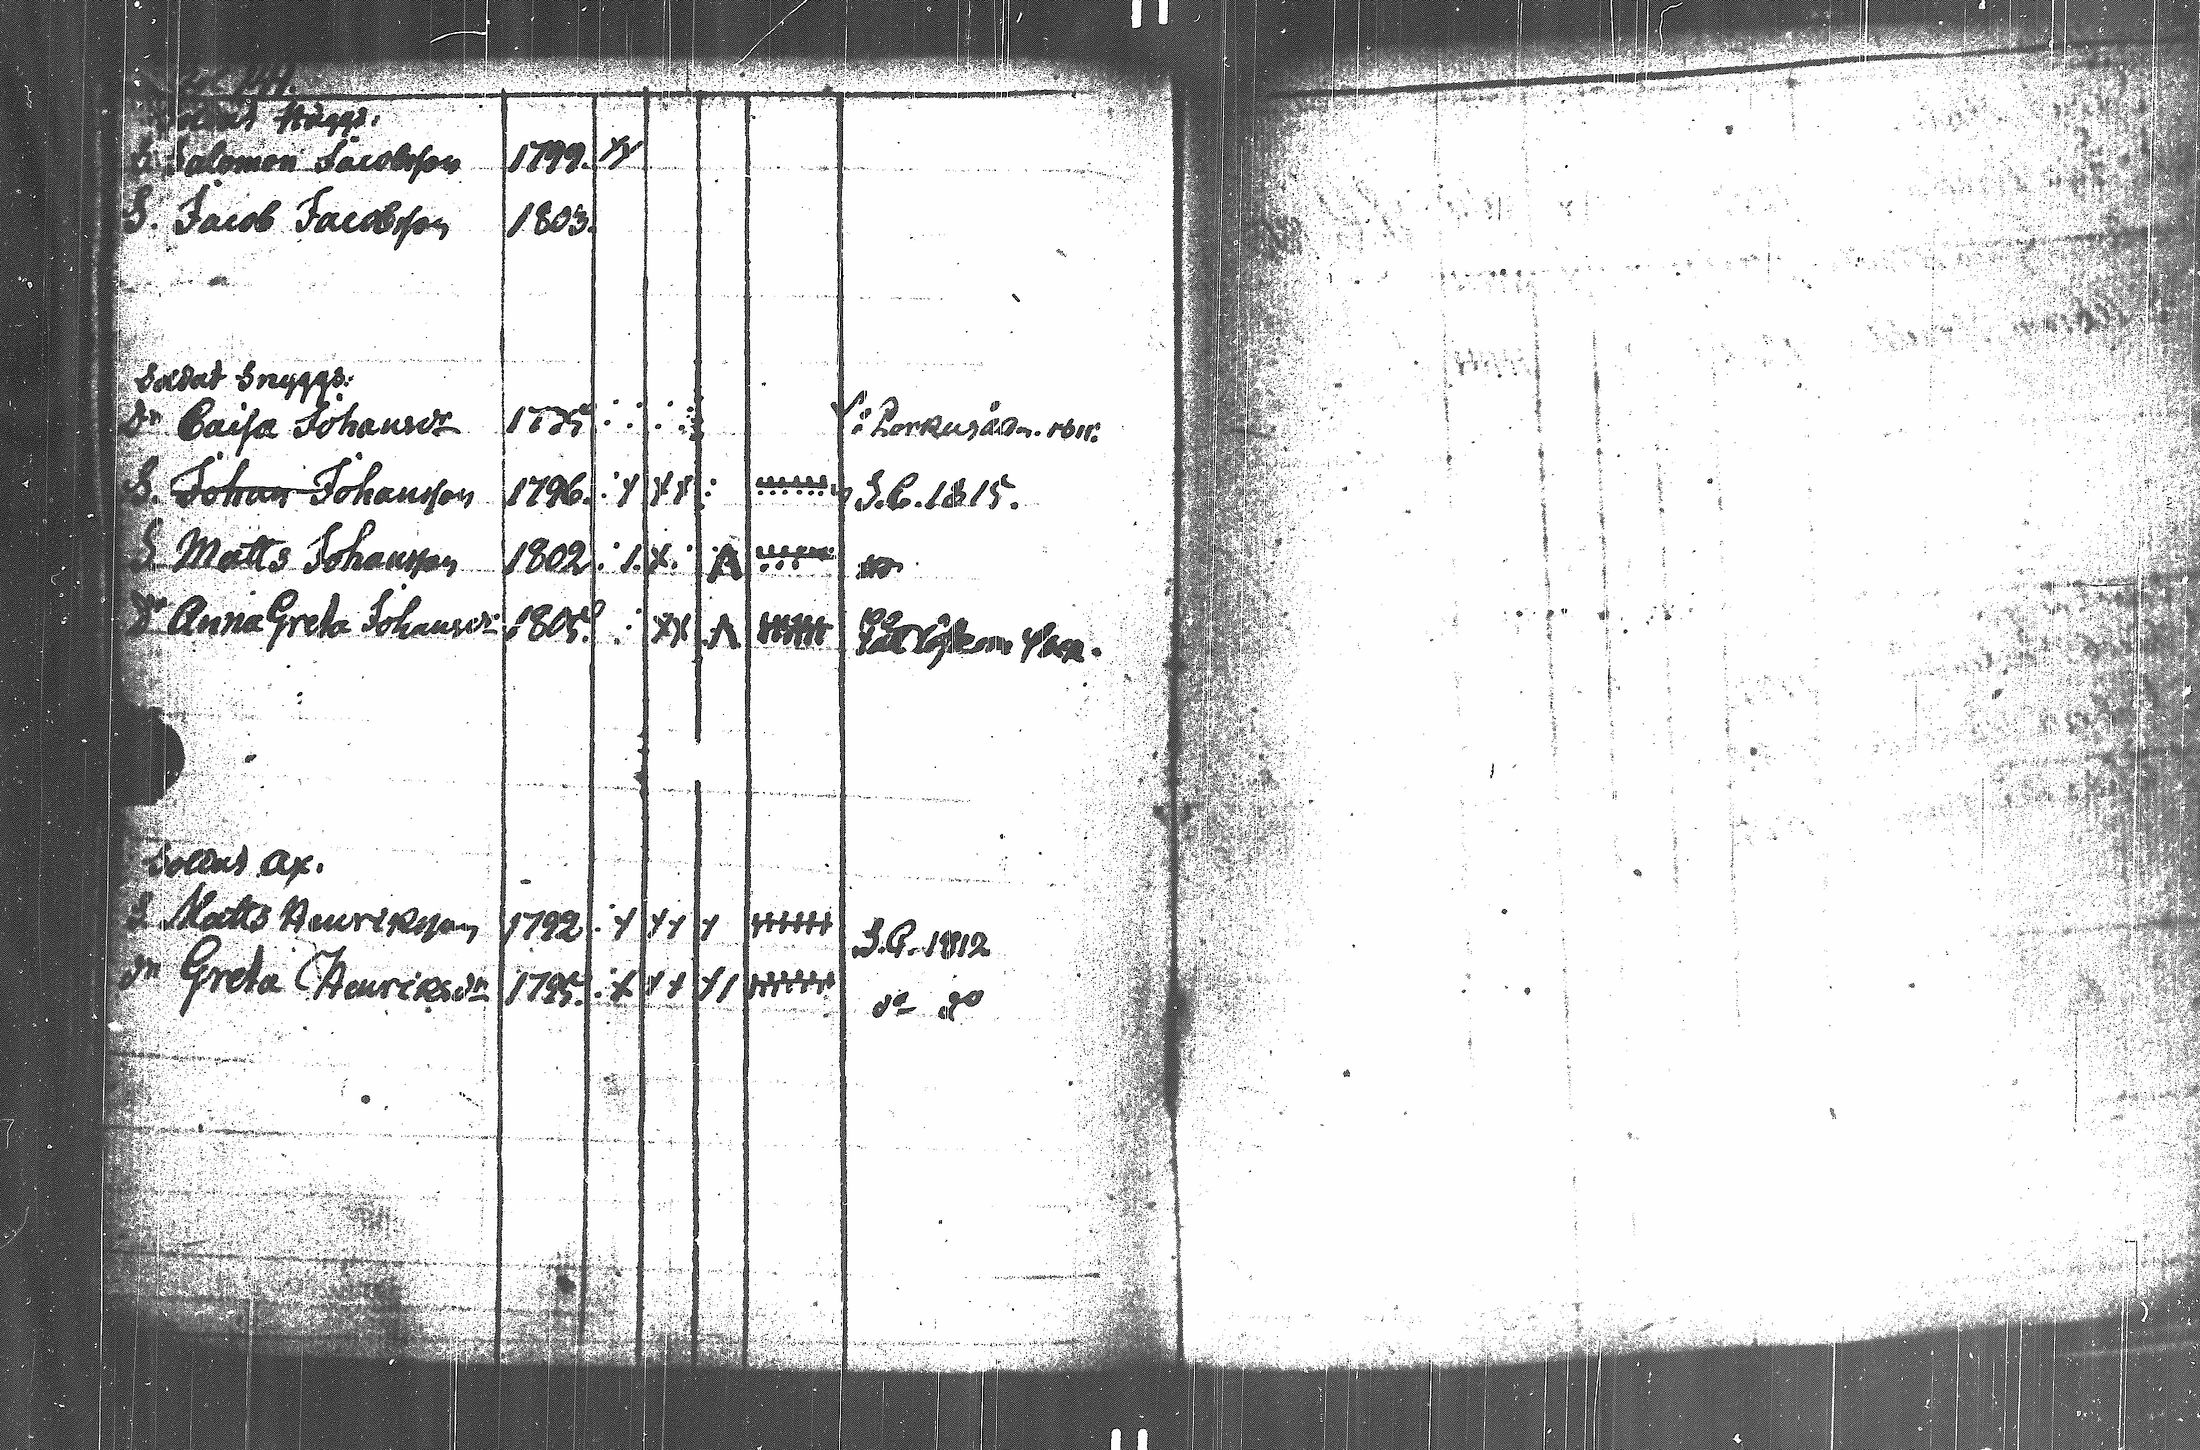 Soldat Häggs.
S. Salomon Jacobsson 1799.
S. Jacob Jacobsson 1803.
Soldat Snyggs:
Dr Caisa Johansdr
S. Johan Johansson 1796. S.C. 1815.
S Matts Johansson 1802.
Dr Anna Greta Johansdr 1805.
Soldat Ax.
S Matts Henriksson 1792 S.C. 1812
Dr Greta Henriksdr 1795. do do